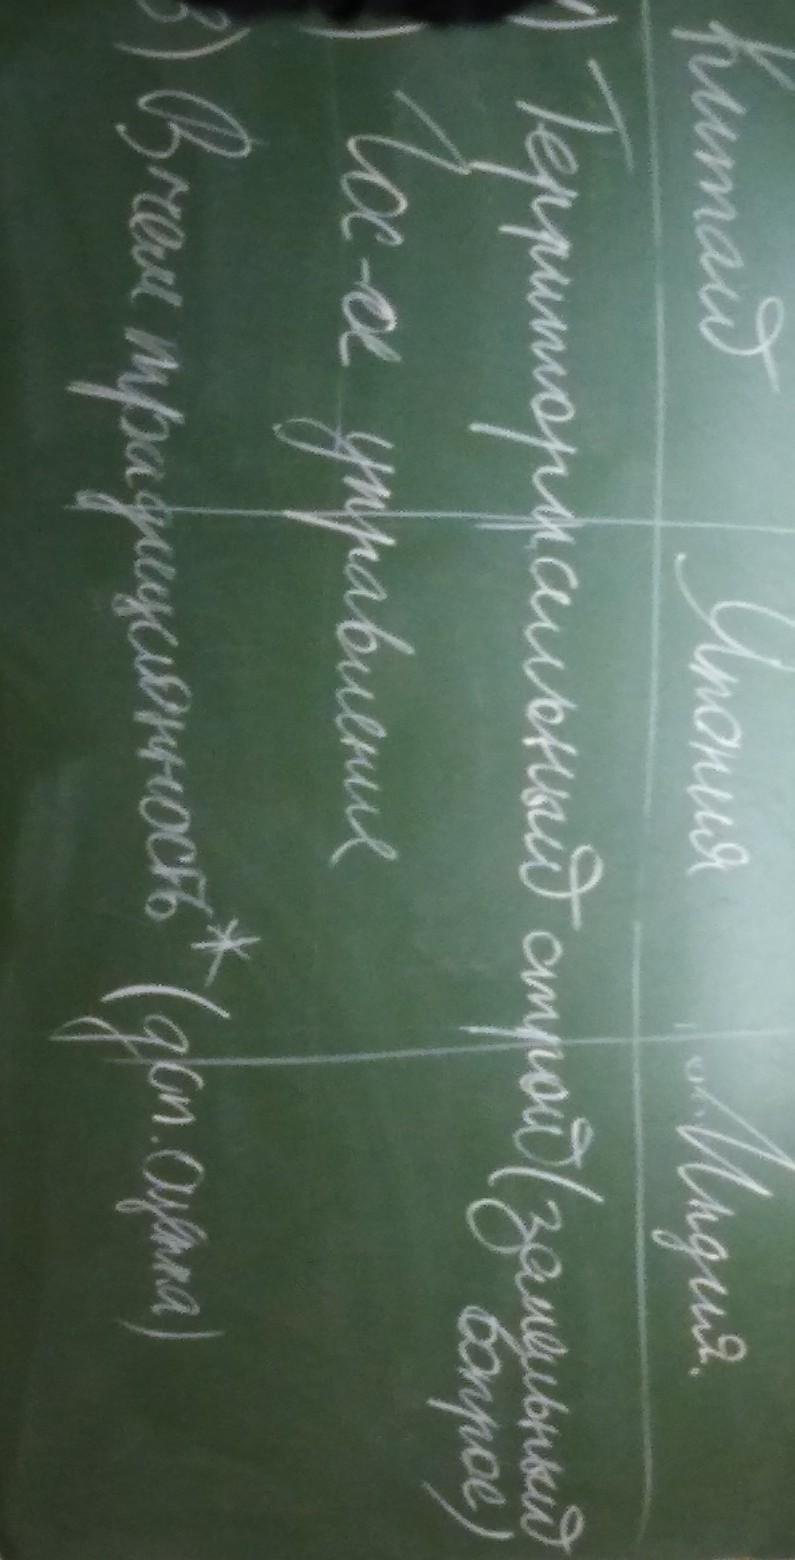 Китай Япония Индия.
) Территориальный строй (земельный
вопрос)
) Гос-ое управление
3) В чем традиционность* (доп. оценка)